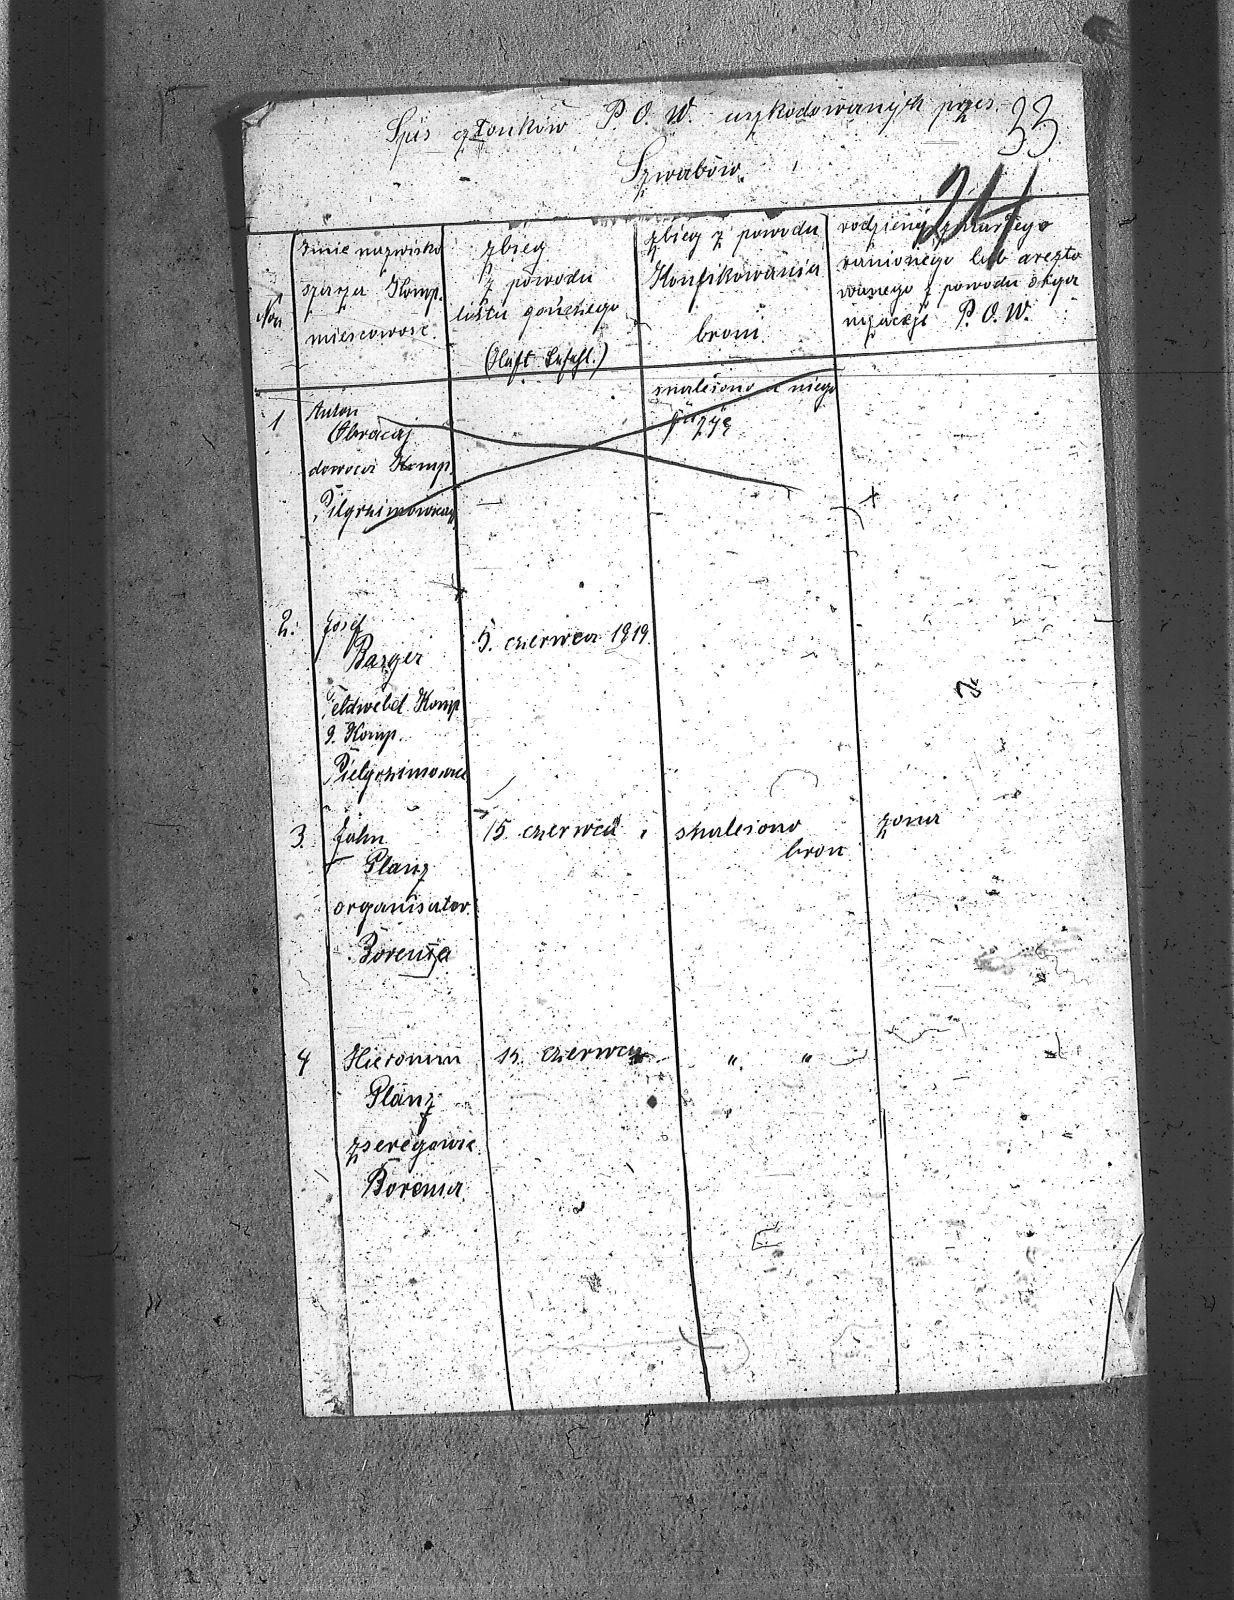 Spis członków P.O.W. uszkodowanych przes
Szwabów.
33
24
Imie nazwisko
szarza Komp.
miescowość
zbieg
z powodu
listu gończego
(Haft Befehl.)
zbieg z powodu
Konfikowania
broni
rodzieny zmarłego
ranionego lub areszto
wanego z powodu orga
nizacji P.O.W.
1 Anton
Obracaj
dowoca Komp.
Pilgrzimowicz
snalesiono u niego
2. Josef
Barger
Feldwebel Komp
9. Komp.
Pielgrzimowice
5. czerwca 1919.
3. John
Planz
organisator.
Borenia
15 czerwca
snalesiono
bron
zona
4 Hieronim
Planz
szeregowic
Borenia.
15. czerwca
" "